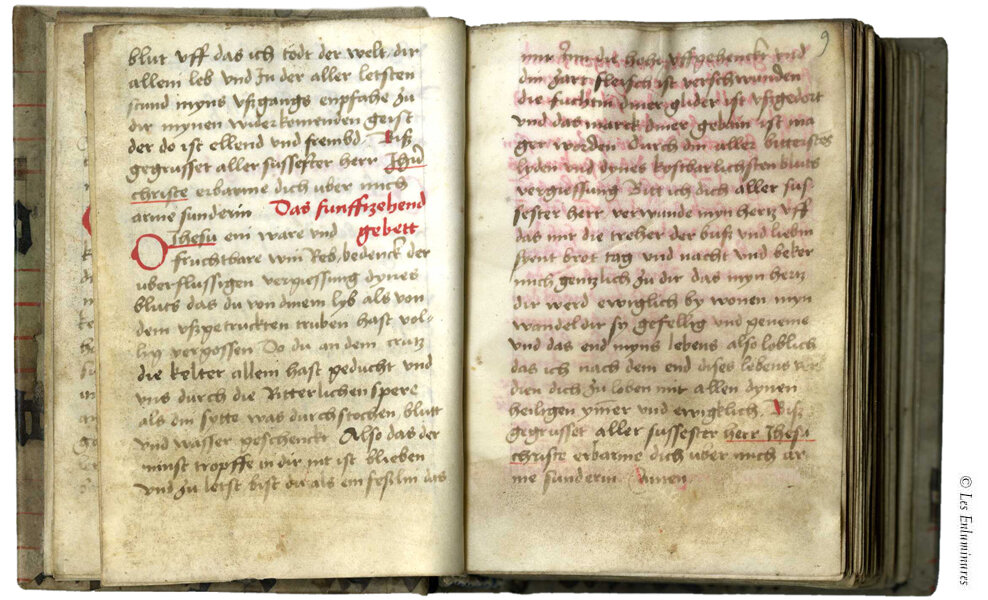 blut vff das ich todt der welt dir
allein leb vnd zu der aller letsten
stund myns vßgangs enpfahe zu
dir mynen widerkomenden geist
der do ist ellend und frembd Biß
gegrusset aller sussester herr Jhesu
christe erbarme dich uber mich
arme sunderin Das funffzehend
gebett
O Jhesu ein ware und
fruchtbare win Reb, bedenck der
uberflussigen vergiessung dynes
bluts das du von dinem lyb als von
dem vßgetruckten truben hast vol-
lig vergossen Do du an dem crutz
die kelter allein hast geducht und
vns durch die Ritterlichen spere
als din sytte was durchstochen, blutt
vnd wasser geschenckt Also das der
minst tropffe in dir nit ist blieben
vnd zu letst bist du als ein feßlin das
9
die hohi vfgehenckt vnd
din zart fleisch ist verschwunden
die fuchtin diner glider ist vßgedort
vnd das marck diner gebain ist ma
ger worden Durch din aller bitterstes
lyden vnd dynes kostbarlichsten bluts
vergiessung Bitt ich dich aller sus-
sester herr verwunde myn hertz vff
das mir die treher der buß vnd liebin
syent brot tag vnd nacht vnd beker
mich gentzlich zu dir das myn hertz
dir werd ewiglich by wonen myn
wandel dir sy gefellig vnd geneme
vnd das end myns lebens also loblich
das ich nach dem end dises lebens ver
dien dich zu loben mit allen dynen
heiligen ymer vnd ewiglich. Biß
gegrusset aller sussester herr Jhesu
christe erbarme dich uber mich ar
me sunderin Amen
© Les Enluminures